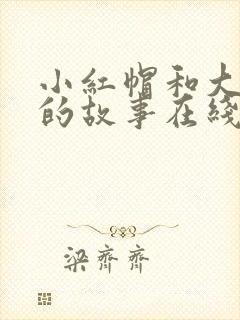 小紅帽和大
的故事在綫
梁齊齊